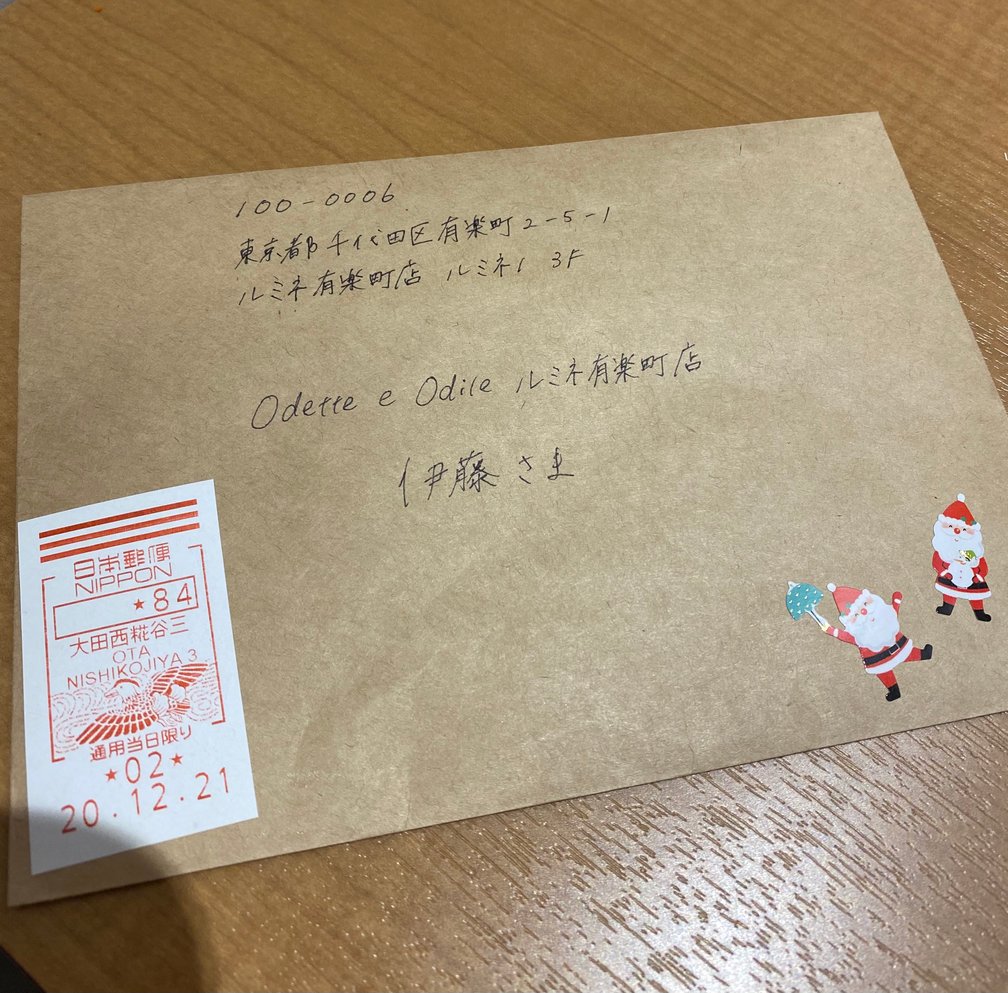 100-0006
東京都千代田区有楽町2-5-1
ルミネ有楽町店 ルミネ1 3F
Odette e Odile ルミネ有楽町店
伊藤さま
日本郵便
NIPPON
★84
大田西糀谷三
OTA
NISHIKOJIYA 3
通用当日限り
★02★
20.12.21